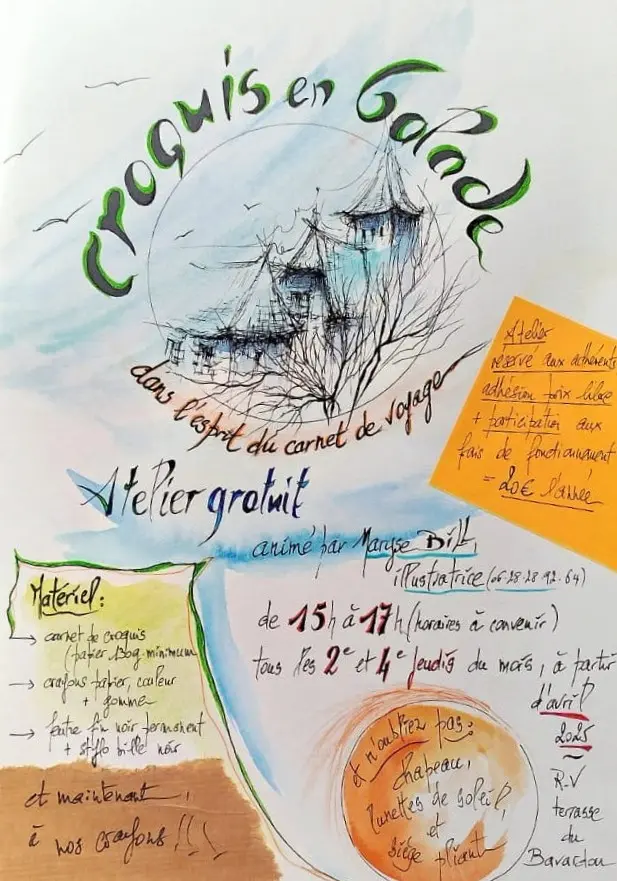 Croquis en balade
dans l'esprit du carnet de voyage
Atelier
réservé aux adhérents
adhésion prix libre
+ participation aux
frais de fonctionnement
= 20€ l'année
Atelier gratuit
animé par Maryse Bill,
illustratrice (06.28.28.92.64)
de 15h à 17h (horaires à convenir)
tous les 2e et 4e jeudis du mois, à partir
d'avril
2025
~
R-V
terrasse
du
Bavardou
Matériel :
→ carnet de croquis
(papier 130g. minimum
→ crayons papier, couleur
+ gomme
→ feutre fin noir permanent
+ stylo bille noir
et n'oubliez pas :
chapeau,
lunettes de soleil,
et
siège pliant
et maintenant,
à nos crayons !!!